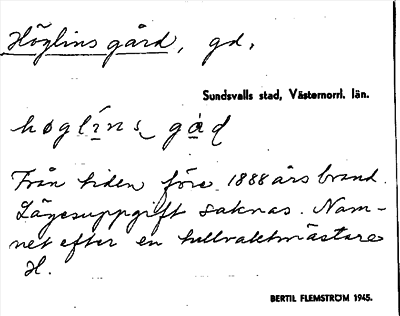 Höglins gård, gd.
Sundsvalls stad, Västernorrl. län.
høglìns gård
Från tiden före 1888 års brand.
Lägesuppgift saknas. Nam-
net efter en tullvaktmästare
H.
BERTIL FLEMSTRÖM 1945.